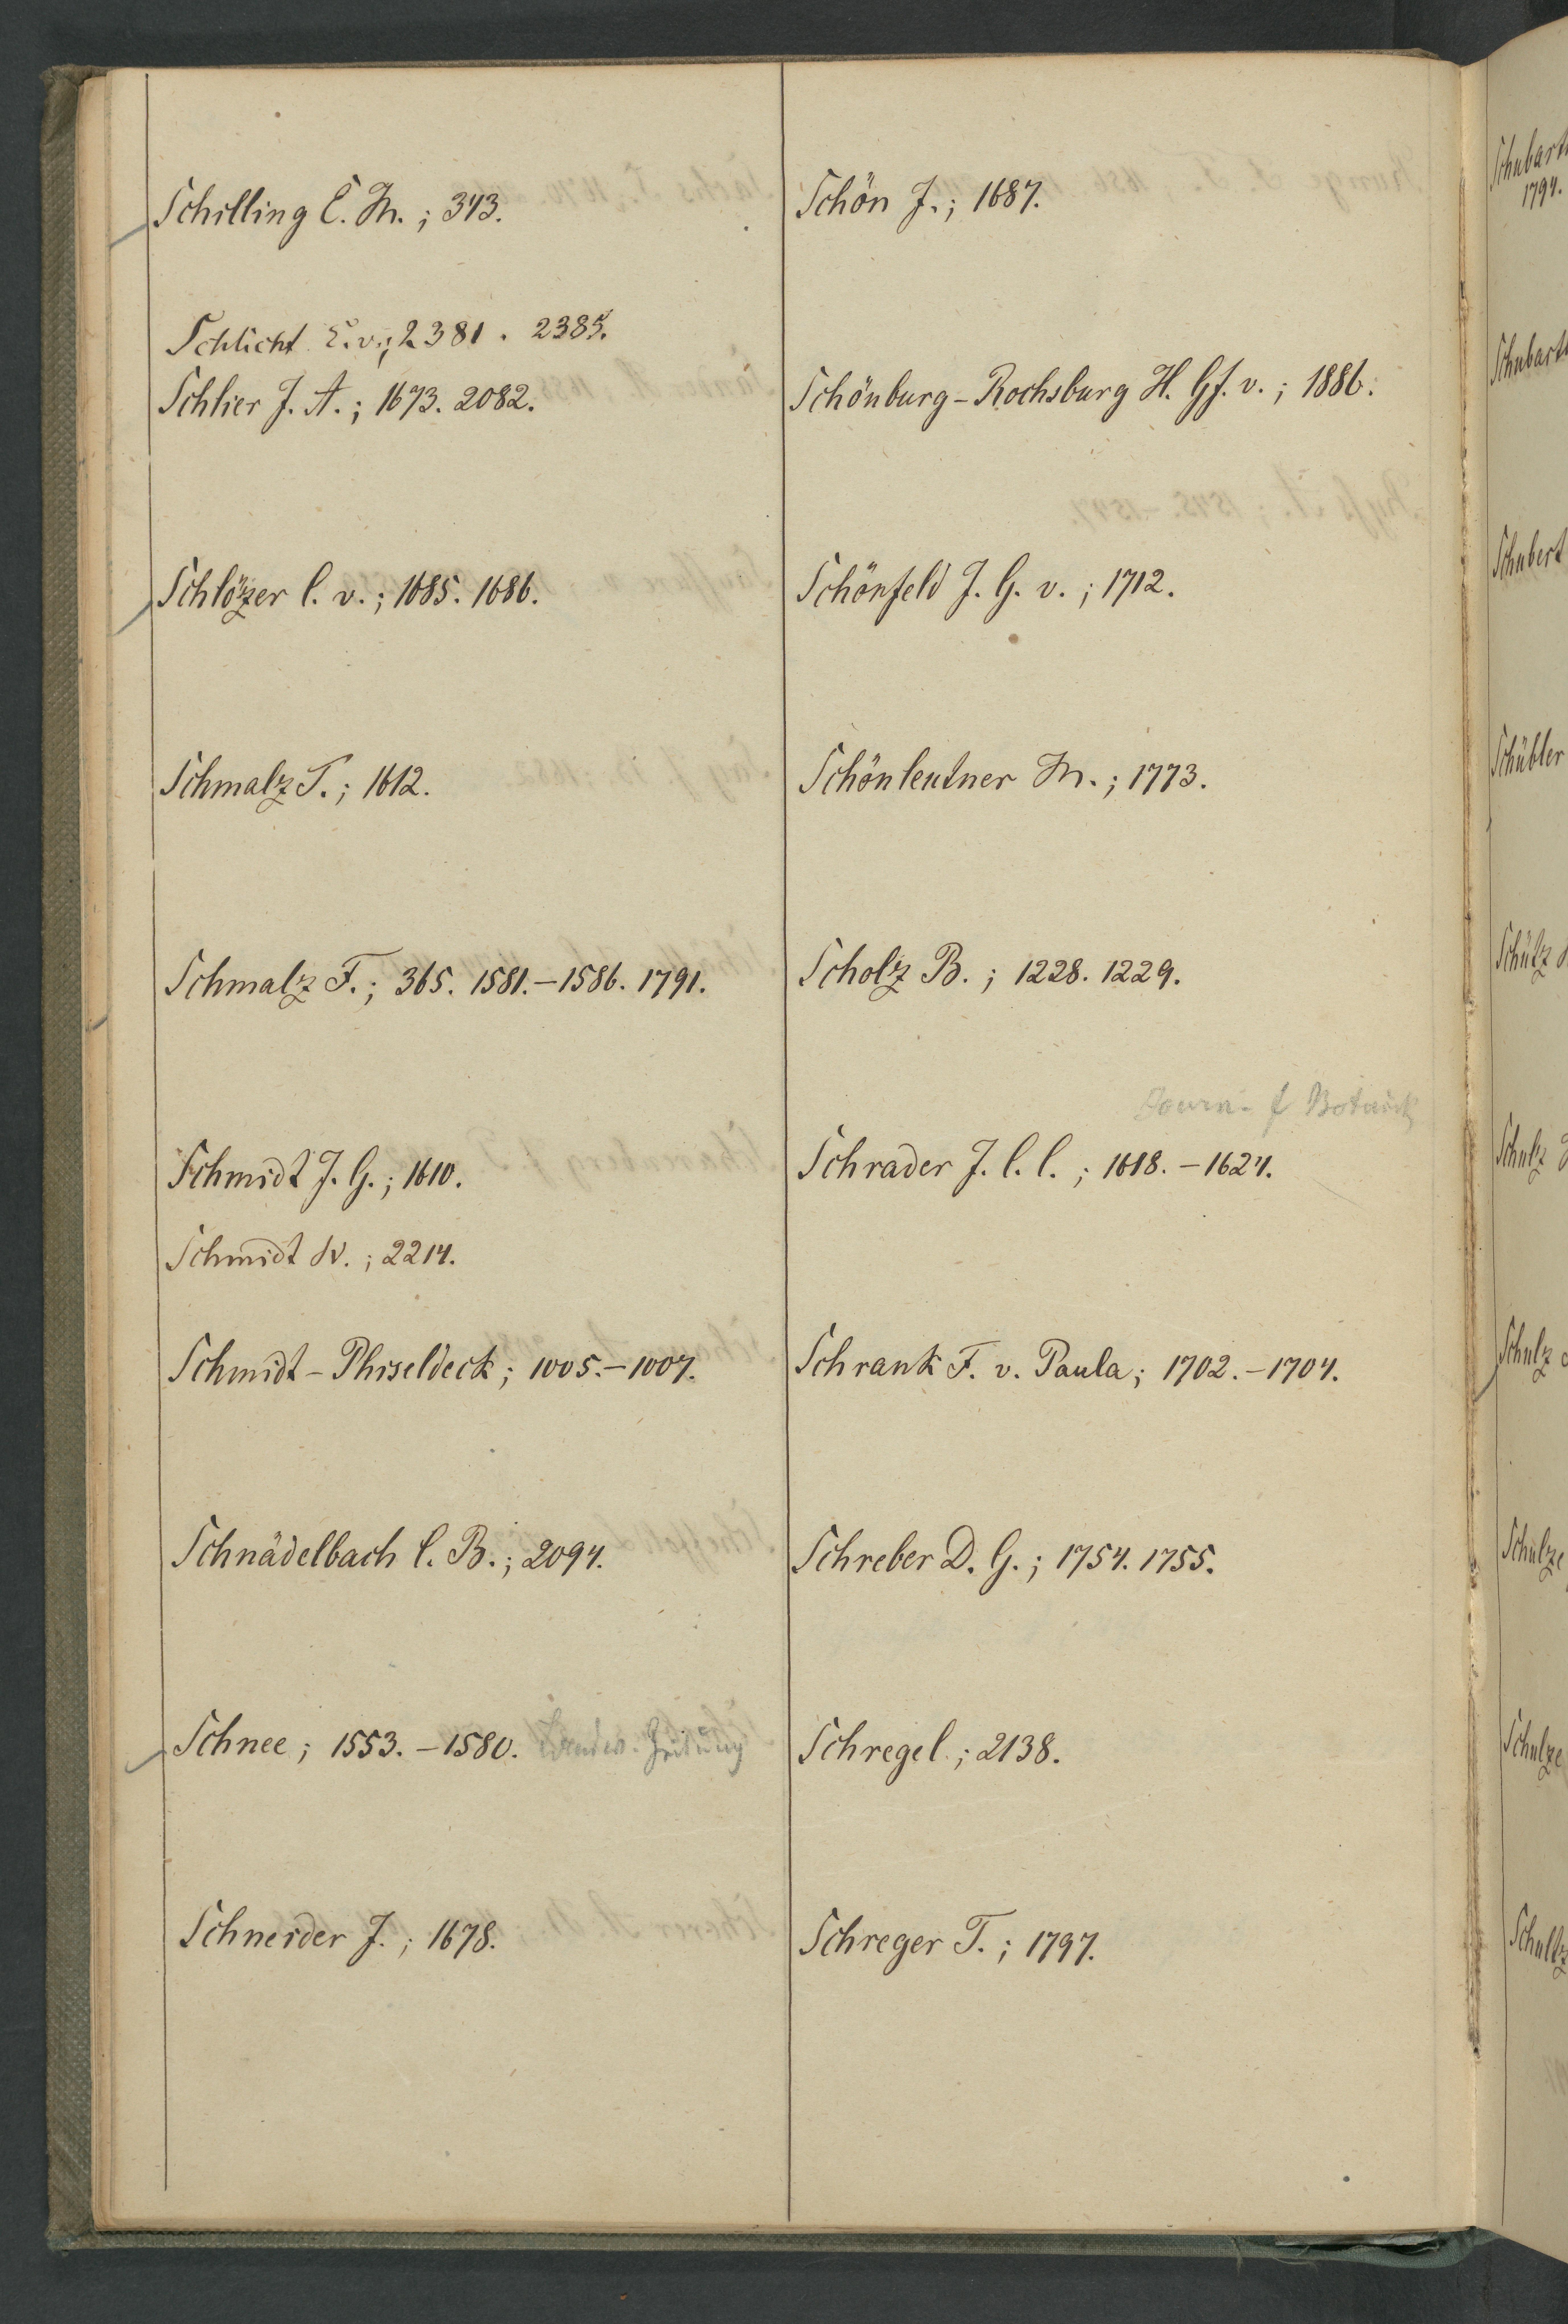 Schilling E. M.; 343.
Schlicht E. v.; 2381. 2385.
Schlier J. A.; 1673. 2082.
Schlözer C. v.; 1685. 1686.
Schmalz T.; 1612.
Schmalz F.; 365. 1581.–1586. 1791.
Schmidt J. G.; 1610.
Schmidt W.; 2214.
Schmidt-Phiseldeck; 1005.–1007.
Schnädelbach C. B.; 2094.
Schnee; 1553.–1580. Landw. Zeitung
Schneider J.; 1678.
Schön J.; 1687.
Schönburg-Rochsburg H. Gf. v.; 1886.
Schönfeld J. G. v.; 1712.
Schönleutner M.; 1773.
Scholz B.; 1228. 1229.
Journ. f Botanik
Schrader J. C. C.; 1618.–1624.
Schrank F. v. Paula; 1702.–1704.
Schreber D. G.; 1754. 1755.
Schregel; 2138.
Schreger T.; 1797.
Schubart
1794.
Schubart
Schubert
Schübler
Schütz
Schulz
Schulz
Schulze
Schulze
Schultz